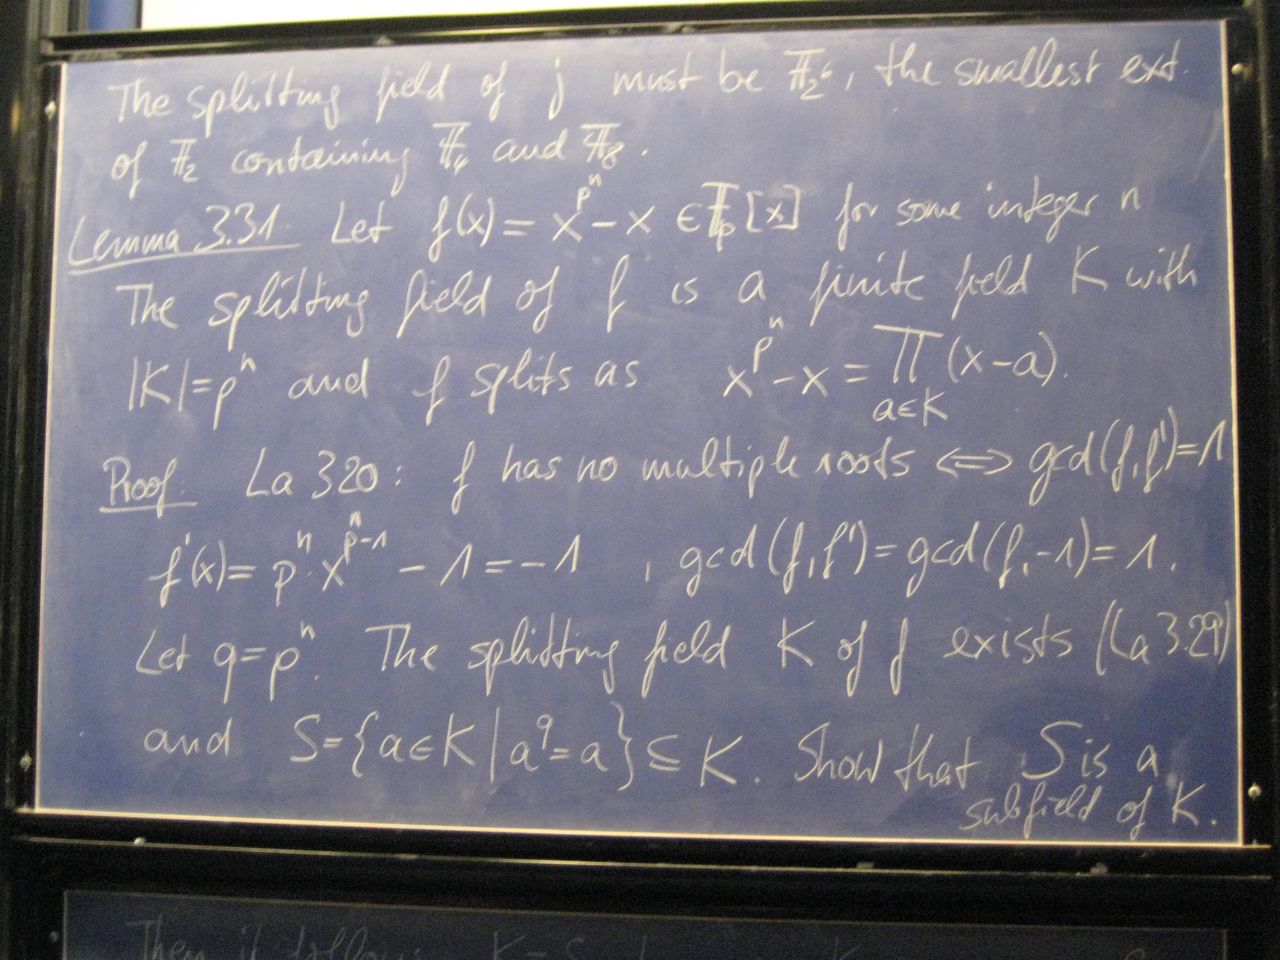 The splitting field of f must be 𝔽₂⁶, the smallest ext.
of 𝔽₂ containing 𝔽₄ and 𝔽₈.
Lemma 3.31. Let f(x) = x^{p^n} - x ∈ 𝔽_p[x] for some integer n
The splitting field of f is a finite field K with
|K| = p^n and f splits as x^{p^n} - x = ∏_{a∈K} (x-a).
Proof. La 3.20: f has no multiple roots ⟺ gcd(f,f')=1
f'(x) = p^n · x^{p^n-1} - 1 = -1, gcd(f,f') = gcd(f,-1) = 1.
Let q = p^n. The splitting field K of f exists (La 3.29)
and S = {a∈K | a^q = a} ⊆ K. Show that S is a
subfield of K.
Then it follows K = S